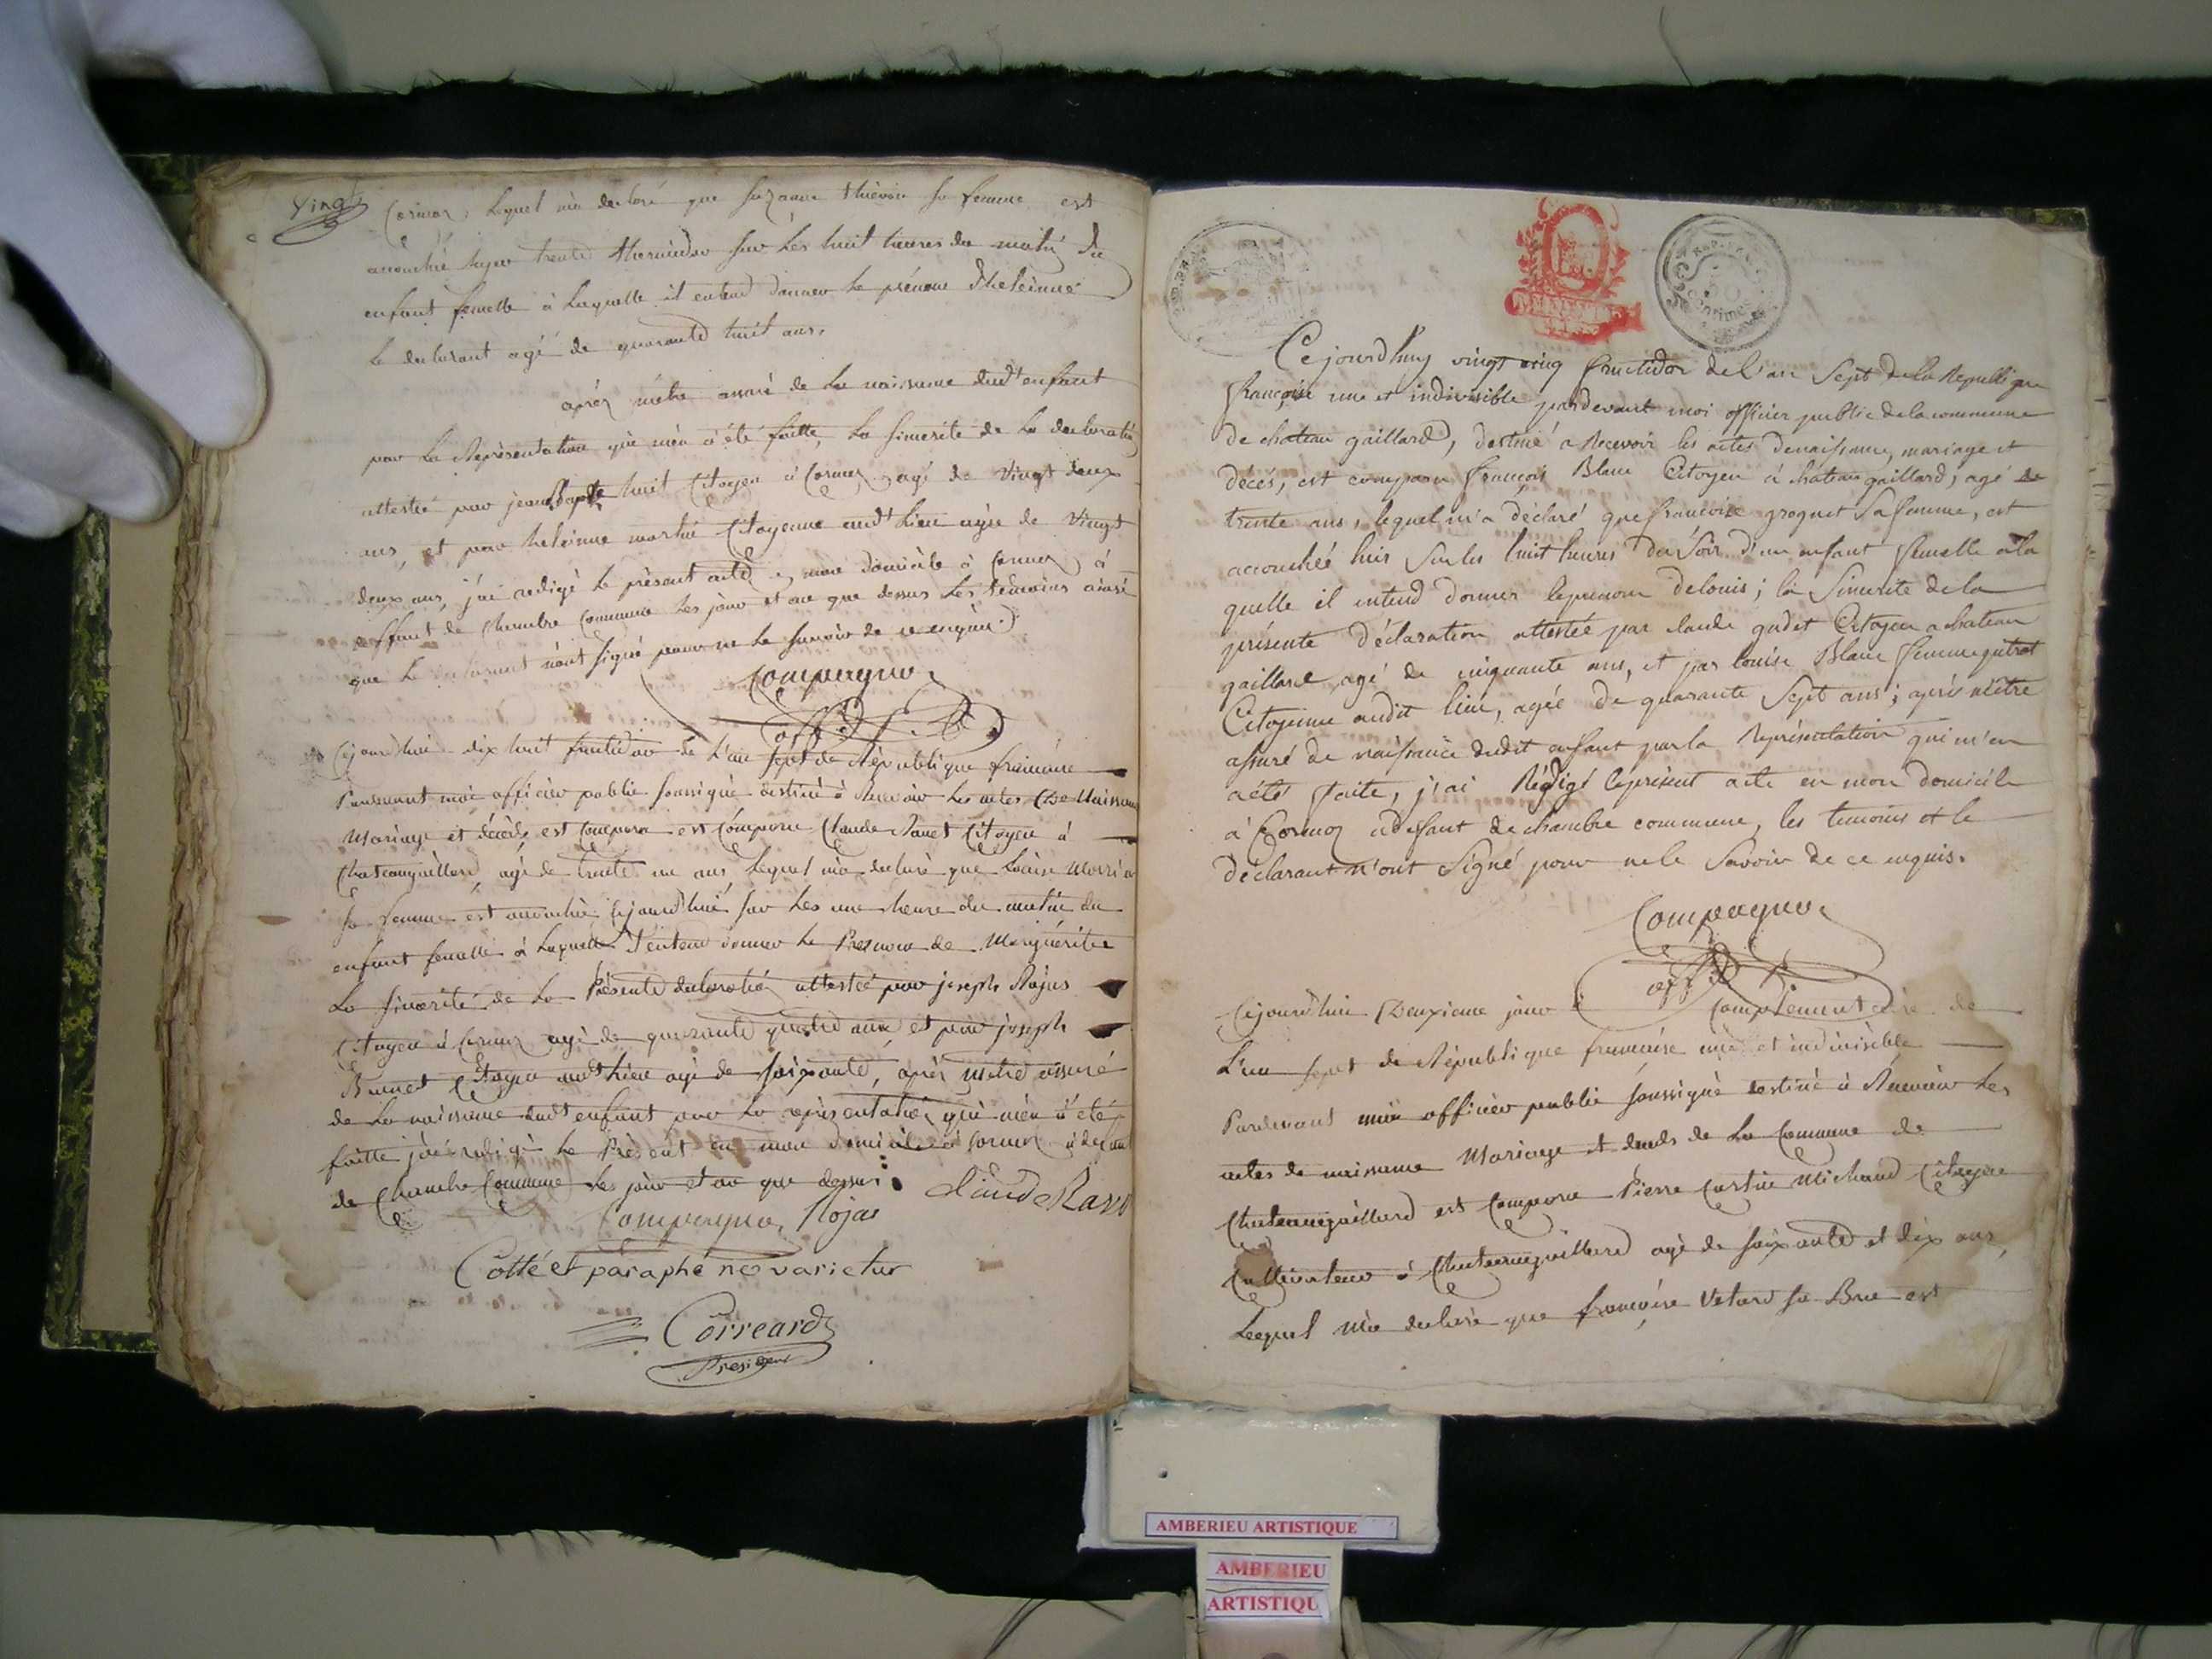 Vingt
Cormoz, Lequel m'a declaré que suzanne thievon sa femme est
accouchée hyer trente thermidor sur les huit heures du matin du
enfant femelle à Laquelle il entend donner le prénom d'heleinne
le declarant agé de quarante huit ans.
aprés m'etre assuré de la naissance dud.t enfant
par La Représentation qui m'en a été faitte, La sincerité de la declaration
attestée par jean Baptte huit Citoyen à Cormoz agé de vingt deux
ans, et par heleinne martin Citoyenne aud.t Lieu agée de vingt
deux ans, j'ai redigé le présent acte en mon domicile à Cormoz à
deffaut de Chambre Commune les jour et an que dessus Les témoins ainsi
que le declarant n'ont signé pour ne le savoir de ce enquis.
Compagnon
off. p.
Cejourd'hui dix huit fructidor de L'an sept de République francaise
Pardevant moi officier public soussigné destiné à Recevoir Les actes De Naissance
Mariage et décèds est Comparu est Comparu Claude Ravet Citoyen à
Chateaugaillard, agé de trente un ans Lequel m'a declaré que Louise
sa femme est accouchée Cejourd'hui sur Les une heure du matin du
enfant femelle à Laquelle J'entend donner Le Prenom de Marguérite
La sincerité de La Présente declaration attestée par joseph Rojas
Citoyen à Cormoz agé de quarante quatre ans, et par joseph
Brunet Citoyen aud.t Lieu agé de soixante, aprés m'etre assuré
de La naissance dud.t enfant par La représentation qui m'en a été
faitte j'ai redigé Le Présent en mon domicile à Cormoz à defaut
de Chambre Commune Les jour et an que dessus
Claude Ravet
Compagnon Rojas
Cotté et paraphé ne varietur
Correard
President
Cejourdhuy vingt cinq fructidor de l'an sept de la Republique
française une et indivisible pardevant moi officier public de la commune
de chateau gaillard, destiné a Recevoir les actes de naissance, mariage et
décès, est comparu françois Blanc Citoyen à chateau gaillard, agé de
trente ans, lequel m'a déclaré que francoise grognet sa femme, est
accouchée hier sur les huit heures du soir d'un enfant femelle a la
quelle il entend donner le prenom de louis; la sincerité de la
présente déclaration attestée par claude gudet Citoyen a chateau
gaillard agé de cinquante ans, et par louise Blanc femme
Citoyenne audit lieu, agée de quarante sept ans; après m'être
assuré de naissance dudit enfant par la Représentation qui m'en
a été faite, j'ai Rédigé le présent acte en mon domicile
à Cormoz a deffaut de chambre commune, les temoins et le
déclarant n'ont signé pour ne le savoir de ce enquis.
Compagnon
off. p.
Cejourd'hui Deuxieme jour Complémentaire de
L'an sept de République francaise une et indivisible
Pardevant moi officier public soussigné destiné à Recevoir Les
actes de naissance Mariage et deceds de La Commune de
Chateaugaillard est Comparu Pierre Michaud Citoyen
Cultivateur à Chateaugaillard agé de soixante et dix ans
Lequel m'a declaré que francoise sa Bru est
REP. FRA.
50
Centimes
AMBERIEU ARTISTIQUE
AMBERIEU
ARTISTIQU